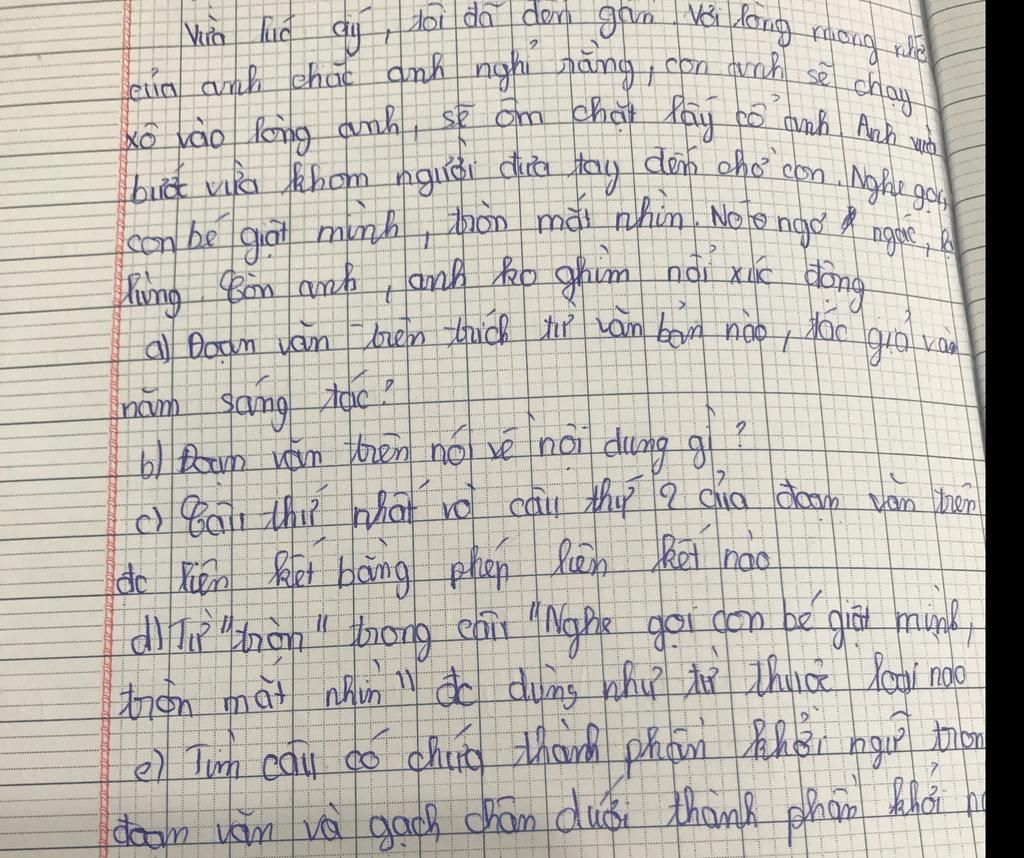 Vừa lúc ấy, tôi đã đến gần. Với lòng mong nhớ
của anh chắc anh nghỉ rằng, con anh sẽ chạy
xô vào lòng anh, sẽ ôm chặt lấy cổ anh. Anh vừa
bước vừa khom người đưa tay đến chờ con. Nghe gọi,
con bé giật mình, tròn mắt nhìn. Nó ngơ ngác,
lùng. Còn anh, anh ko ghìm nổi xúc động
a) Đoạn văn trên trích từ văn bản nào, tác giả và
năm sáng tác?
b) Đoạn văn trên nói về nội dung gì?
c) Câu thứ nhất và câu thứ 2 của đoạn văn trên
đc liên kết bằng phép liên kết nào
d) Từ "tròn" trong câu "Nghe gọi con bé giật mình,
tròn mắt nhìn" đc dùng như từ thuộc loại nào
e) Tìm câu có chứa thành phần khởi ngữ tron
đoạn văn và gạch chân dưới thành phần khởi